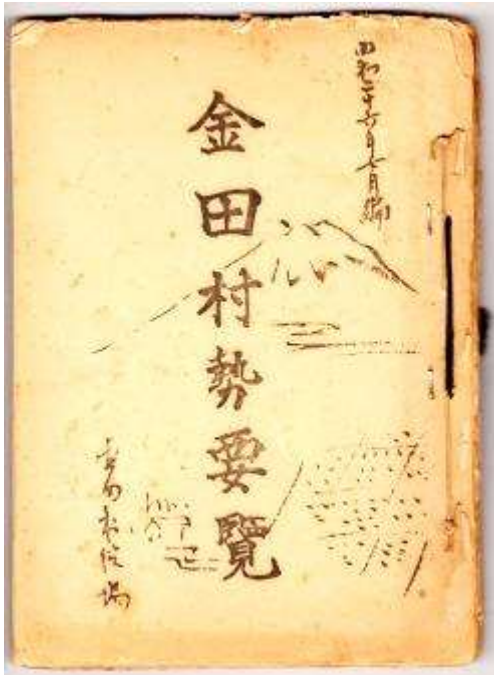 昭和二十六年七月編
金田村勢要覧
金田村役場